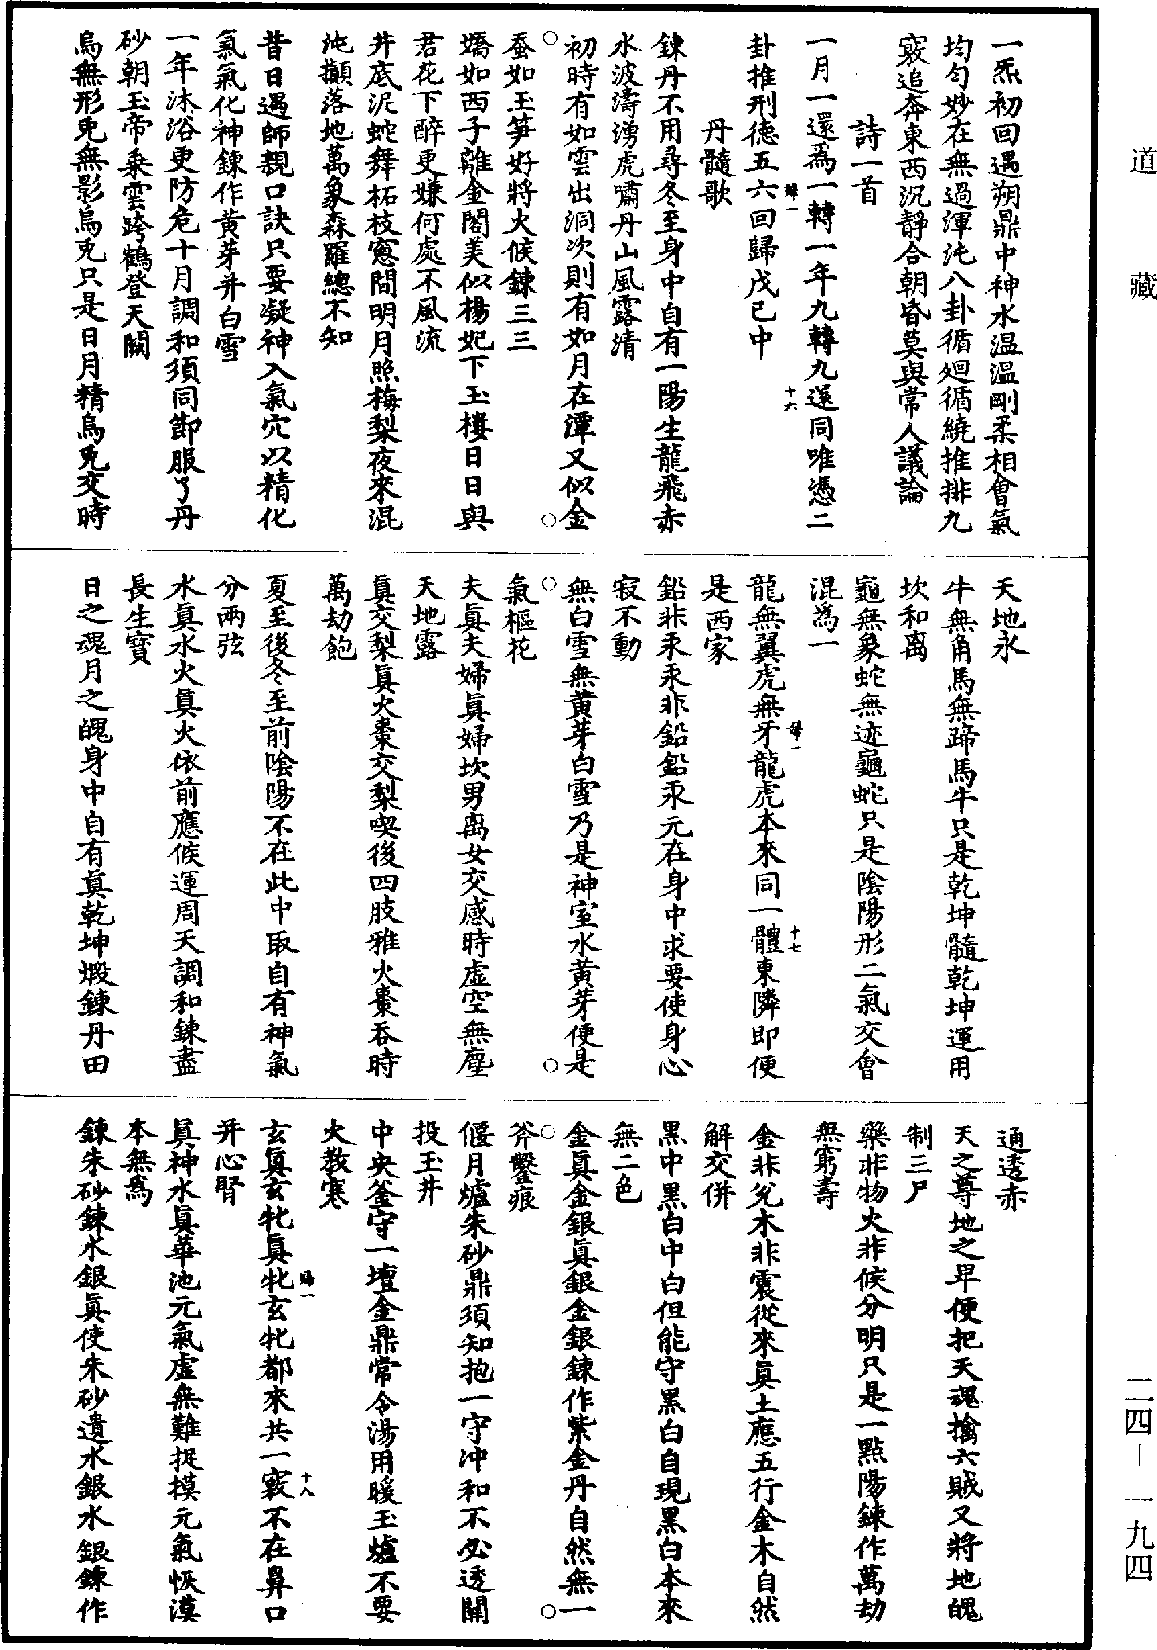 道藏
一炁初回遇朔鼎中神水温温剛柔相會氣
均匀妙在無過渾沌八卦循廻循繞推排九
竅追奔東西沉靜合朝昏莫與常人議論
詩一首
一月一還為一轉一年九轉九還同唯憑二
卦推刑德五六回歸戊己中
十六
丹髓歌
鍊丹不用尋冬至身中自有一陽生龍飛赤
水波濤湧虎嘯丹山風露清
初時有如雲出洞次則有如月在潭又似金
蚕如玉笋好將火候鍊三三
嬌如西子離金閣美似楊妃下玉樓日日與
君花下醉更嫌何處不風流
井底泥蛇舞柘枝窻間明月照梅梨夜來混
沌攧落地萬象森羅總不知
昔日遇師親口訣只要凝神入氣穴以精化
氣氣化神鍊作黄芽并白雪
一年沐浴更防危十月調和須同節服了丹
砂朝玉帝乗雲跨鶴登天闕
烏無形兎無影烏兎只是日月精烏兎交時
天地永
牛無角馬無蹄馬牛只是乾坤髓乾坤運用
坎和离
龜無象蛇無迹龜蛇只是陰陽形二氣交會
混為一
龍無翼虎無牙龍虎本來同一體東隣即便
是西家
十七
鉛非汞汞非鉛鉛汞元在身中求要使身心
寂不動
無白雪無黄芽白雪乃是神室水黄芽便是
氣樞花
夫真夫婦真婦坎男离女交感時虚空無塵
天地露
真交梨真火棗交梨喫後四肢雅火棗吞時
萬劫飽
夏至後冬至前陰陽不在此中取自有神氣
分兩弦
水真水火真火依前應候運周天調和鍊盡
長生寶
日之魂月之魄身中自有真乾坤煅鍊丹田
通透赤
天之尊地之卑便把天魂擒六賊又將地魄
制三尸
藥非物火非候分明只是一點陽鍊作萬劫
無窮壽
金非兌木非震從來真土應五行金木自然
解交併
黒中黒白中白但能守黒白自現黒白本來
無二色
金真金銀真銀金銀鍊作紫金丹自然無一
斧鑿痕
偃月爐朱砂鼎須知抱一守冲和不必透關
投玉井
中央釜守一壇金鼎常令湯用暖玉爐不要
火教寒
玄真玄牝真牝玄牝都來共一竅不在鼻口
并心腎
十八
真神水真華池元氣虚無難捉摸元氣恢漠
本無為
鍊朱砂鍊水銀真使朱砂遺水銀水銀鍊作
二四—一九四